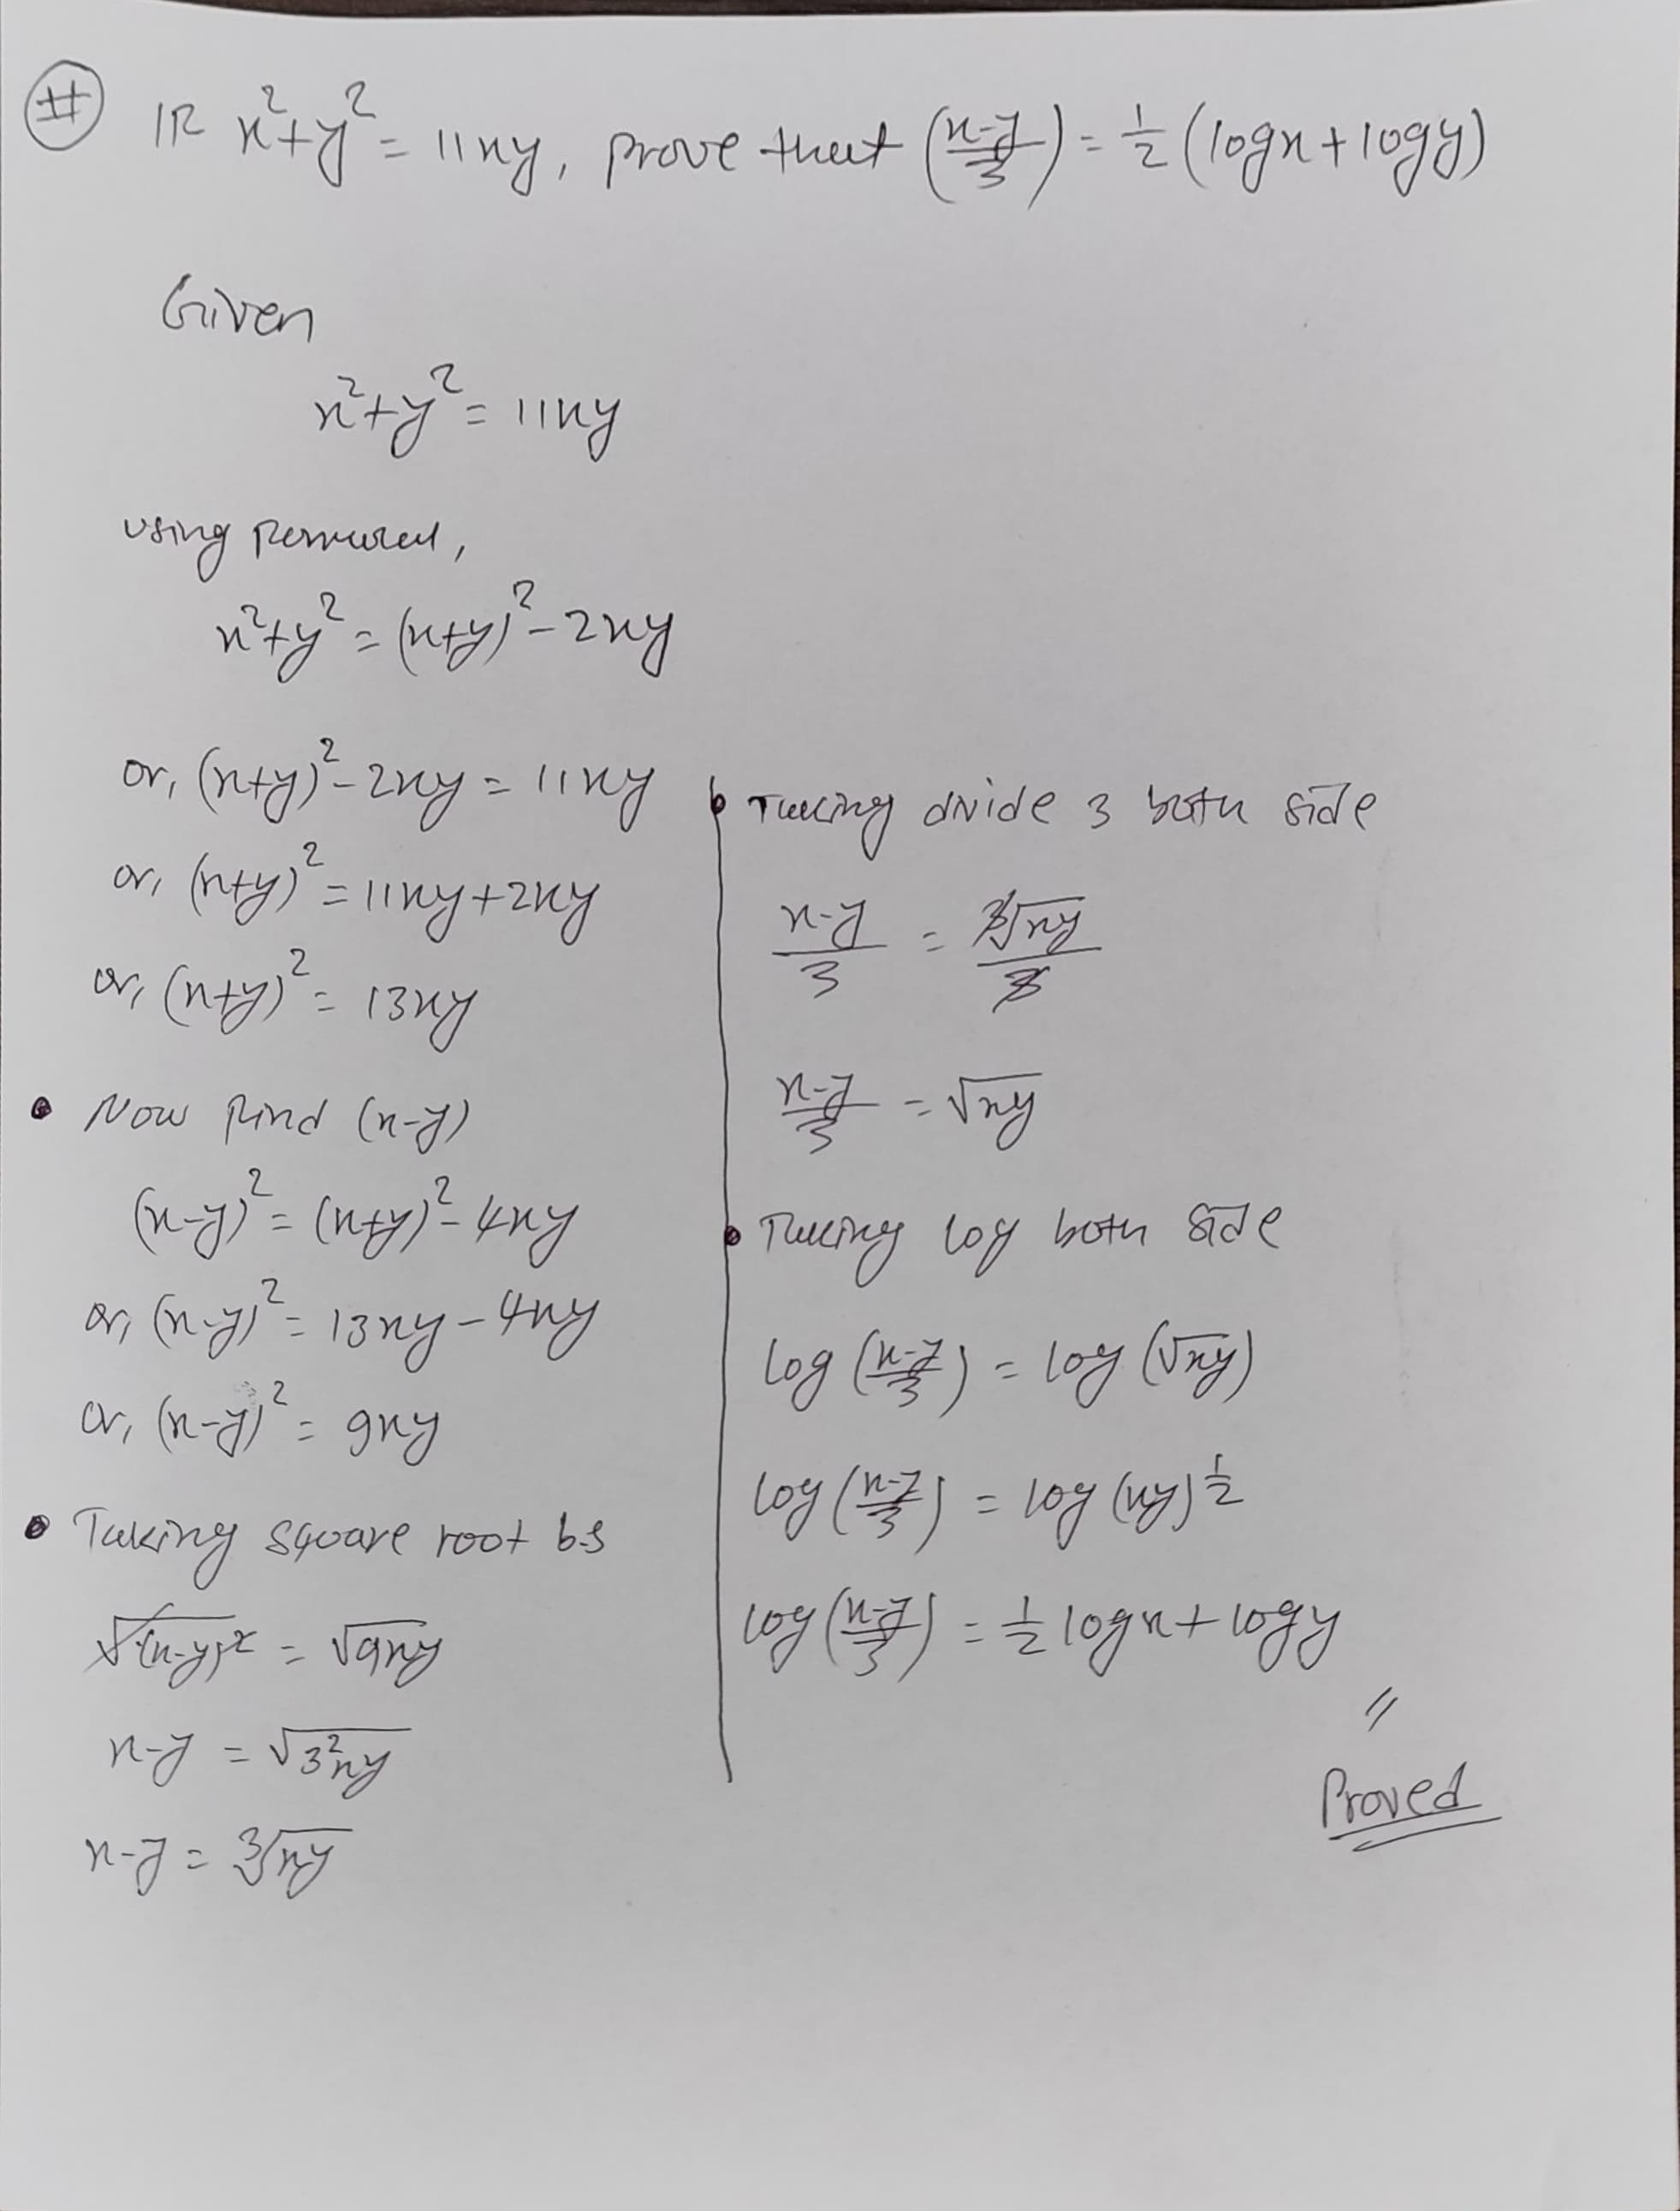 # If x²+y² = 11xy, prove that (x-y/3) = 1/2 (logx + logy)
Given
x²+y² = 11xy
using formula,
x²+y² = (x+y)² - 2xy
or, (x+y)² - 2xy = 11xy
or, (x+y)² = 11xy + 2xy
or, (x+y)² = 13xy
• Now find (x-y)
(x-y)² = (x+y)² - 4xy
or, (x-y)² = 13xy - 4xy
or, (x-y)² = 9xy
• Taking square root b.s
√(x-y)² = √9xy
x-y = √3²xy
x-y = 3√xy
• Taking divide 3 both side
x-y/3 = 3√xy/3
x-y/3 = √xy
• Taking log both side
log (x-y/3) = log (√xy)
log (x-y/3) = log (xy)^1/2
log (x-y/3) = 1/2 logx + logy
//
Proved